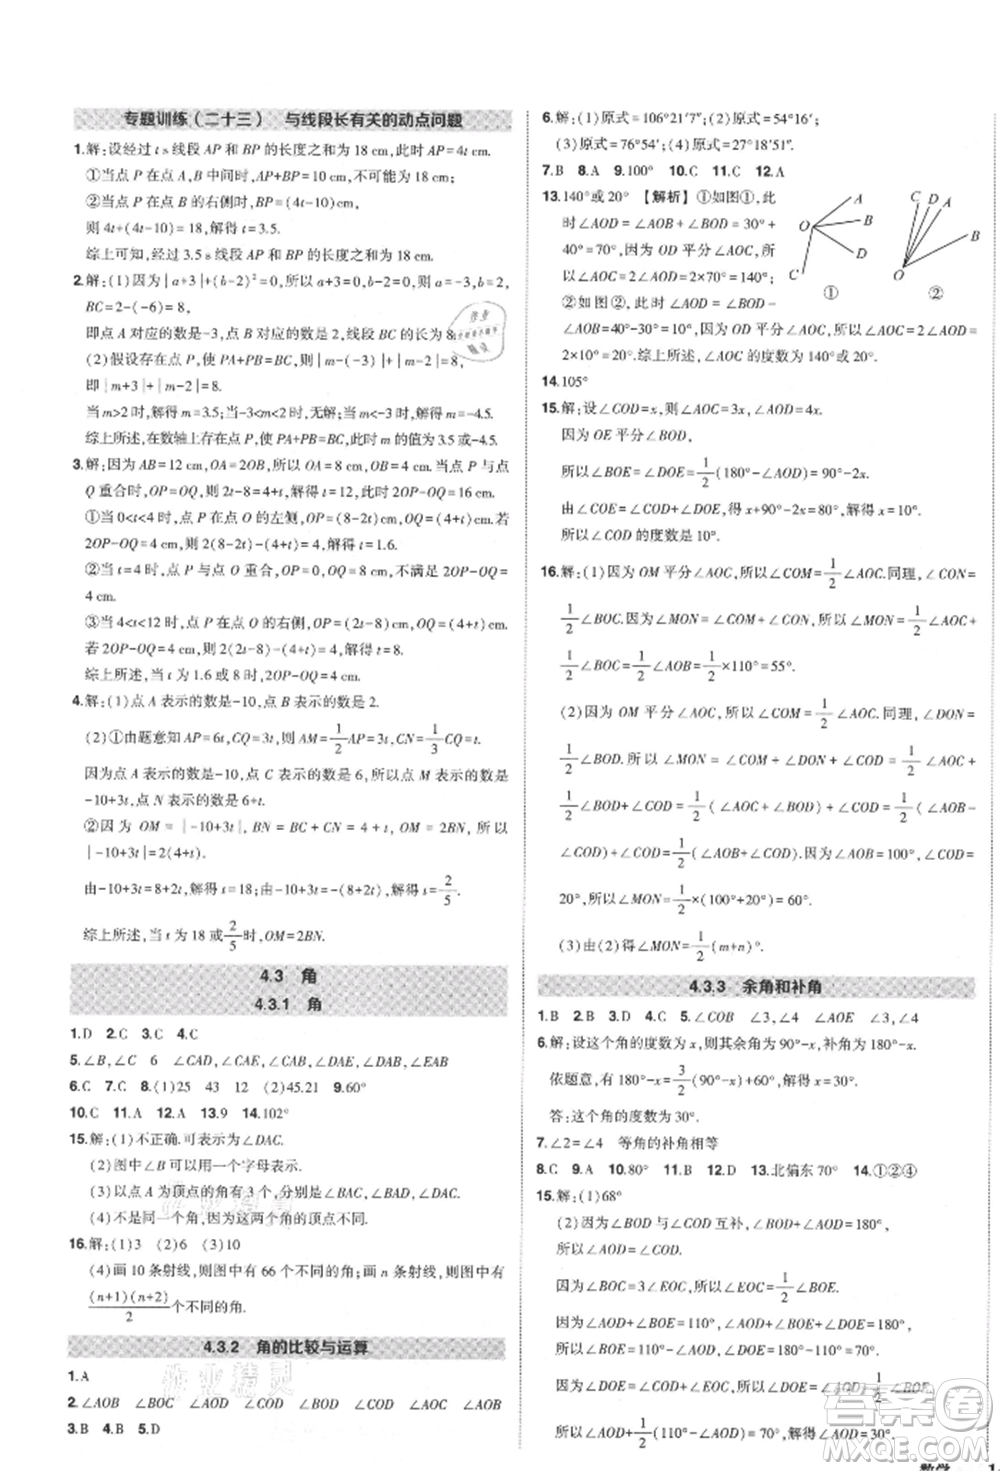 专题训练(二十三) 与线段长有关的动点问题
1.解:设经过 t s 线段 AP 和 BP 的长度之和为 18 cm,此时 AP=4t cm.
①当点 P 在点 B 的左侧时,AP+BP=10 cm,不可能为 18 cm;
②当点 P 在点 B 的右侧时,BP=(4t-10) cm,
则 4t+(4t-10)=18,解得 t=3.5.
综上可知,经过 3.5 s 线段 AP 和 BP 的长度之和为 18 cm.
2.解:(1)因为|a+3|+(b-2)²=0,所以 a+3=0,b-2=0,所以 a=-3,b=2,
BC=2-(-6)=8,
即点 A 对应的数是-3,点 B 对应的数是 2,线段 BC 的长为 8.
(2)假设存在点 P,则 PA+PB=BC 即为|m-(-3)|+|m-2|=8,
即|m+3|+|m-2|=8.
当 m>2 时,解得 m=3.5;当-3<m<2 时,无解;当 m<-3 时,解得 m=-4.5.
综上所述,在数轴上存在点 P,使 PA+PB=BC,m 的值为 3.5 或-4.5.
3.解:因为 AB=12 cm,OA=2OB,所以 OA=8 cm,OB=4 cm.当点 P 与点
Q 重合时,OP=OQ,则 2t-8=4+t,解得 t=12,此时 2OP-OQ=16 cm.
①当 0<t<4 时,点 P 在点 O 的左侧,OP=(8-2t) cm,OQ=(4+t) cm.若
2OP-OQ=4 cm,则 2(8-2t)-(4+t)=4,解得 t=1.6.
②当 t=4 时,点 P 与点 O 重合,OP=0 cm,OQ=8 cm,不满足 2OP-OQ=
4 cm.
③当 4<t<12 时,点 P 在点 O 的右侧,OP=(2t-8) cm,OQ=(4+t) cm.
若 2OP-OQ=4 cm,则 2(2t-8)-(4+t)=4,解得 t=8.
综上所述,当 t 为 1.6 或 8 时,2OP-OQ=4 cm.
4.解:(1)点 A 表示的数是-10,点 B 表示的数是 2.
(2)①由题意知 AP=6t,CQ=3t,则 AM=1/2AP=3t,CN=1/3CQ=t.
因为点 A 表示的数是-10,点 C 表示的数是 6,所以点 M 表示的数是
-10+3t,点 N 表示的数是 6+t.
②因为 OM=|-10+3t|,BN=BC+CN=4+t,OM=2BN,所以
|-10+3t|=2(4+t).
由-10+3t=8+2t,解得 t=18;由-10+3t=-(8+2t),解得 t=2/5.
综上所述,当 t 为 18 或2/5时,OM=2BN.
4.3 角
4.3.1 角
1.D 2.C 3.C 4.C
5.∠B,∠C 6 ∠CAD,∠CAE,∠CAB,∠DAE,∠DAB,∠EAB
6.C 7.D 8.(1)25 43 12 (2)45.21 9.60°
10.C 11.A 12.A 13.9 14.102°
15.解:(1)不正确.可表示为∠DAC.
(2)图中∠B 可以用一个字母表示.
(3)以点 A 为顶点的角有 3 个,分别为∠BAC,∠BAD,∠DAC.
(4)不是同一个角,因为这两个角的顶点不同.
16.解:(1)3 (2)6 (3)10
(4)画 10 条射线,则图中有 66 个不同的角;画 n 条射线,则图中有
(n+1)(n+2)/2个不同的角.
4.3.2 角的比较与运算
1.A
2.∠AOB ∠BOC ∠AOC ∠AOD ∠BOD ∠AOB ∠BOD
3.B 4.B 5.D
6.解:(1)原式=106°21′7″.(2)原式=54°16′.
(3)原式=76°54′.(4)原式=27°18′51″.
7.B 8.A 9.100° 10.C 11.C 12.A
13.140°或 20° 【解析】①如图①,此
时∠AOD=∠AOB+∠BOD=30°+
40°=70°,因为 OD 平分∠AOC,所
以∠AOC=2∠AOD=2×70°=140°;
②如图②,此时∠AOD=∠BOD-
∠AOB=40°-30°=10°,因为 OD 平分∠AOC,所以∠AOC=2∠AOD=
2×10°=20°.综上所述,∠AOC 的度数为 140°或 20°.
A
O
B
D
C
①
C D A
B
O
②
14.105°
15.解:设∠COD=x,则∠AOC=3x,∠AOD=4x.
因为 OE 平分∠BOD,
所以∠BOE=∠DOE=1/2(180°-∠AOD)=90°-2x.
由∠COE=∠COD+∠DOE,得 x+90°-2x=80°,解得 x=10°.
所以∠COD 的度数是 10°.
16.解:(1)因为 OM 平分∠AOC,所以∠COM=1/2∠AOC.同理,∠CON=
1/2∠BOC.因为∠MON=∠COM+∠CON,所以∠MON=1/2∠AOC+
1/2∠BOC=1/2∠AOB=1/2×110°=55°.
(2)因为 OM 平分∠AOC,所以∠COM=1/2∠AOC.同理,∠DON=
1/2∠BOD.所以∠MON=∠COM+∠COD+∠DON=1/2∠AOC+
1/2∠BOD+∠COD=1/2(∠AOC+∠BOD)+∠COD=1/2(∠AOB-
∠COD)+∠COD=1/2(∠AOB+∠COD).因为∠AOB=100°,∠COD=
20°,所以∠MON=1/2×(100°+20°)=60°.
(3)由(2)得∠MON=1/2(m+n)°.
4.3.3 余角和补角
1.B 2.B 3.D 4.C 5.∠COB ∠3,∠4 ∠AOE ∠3,∠4
6.解:设这个角的度数为 x,则其余角为 90°-x,补角为 180°-x.
依题意,有 180°-x=3/2(90°-x)+60°,解得 x=30°.
答:这个角的度数为 30°.
7.∠2=∠4 等角的补角相等
8.C 9.A 10.80° 11.C 12.D 13.北偏东 70° 14.①②④
15.解:(1)68°
(2)因为∠BOD 与∠COD 互补,∠BOD+∠AOD=180°,
所以∠AOD=∠COD.
因为∠BOC=3∠EOC,所以∠EOC=1/2∠BOE.
因为∠DOE=∠COD+∠EOC=70°,
所以∠BOE+∠AOD=110°,∠DOE=∠AOD+1/2∠BOE.
所以∠DOE=1/2(∠AOD+110°)=70°,解得∠AOD=30°.
数学
答案圈
MXQE.COM